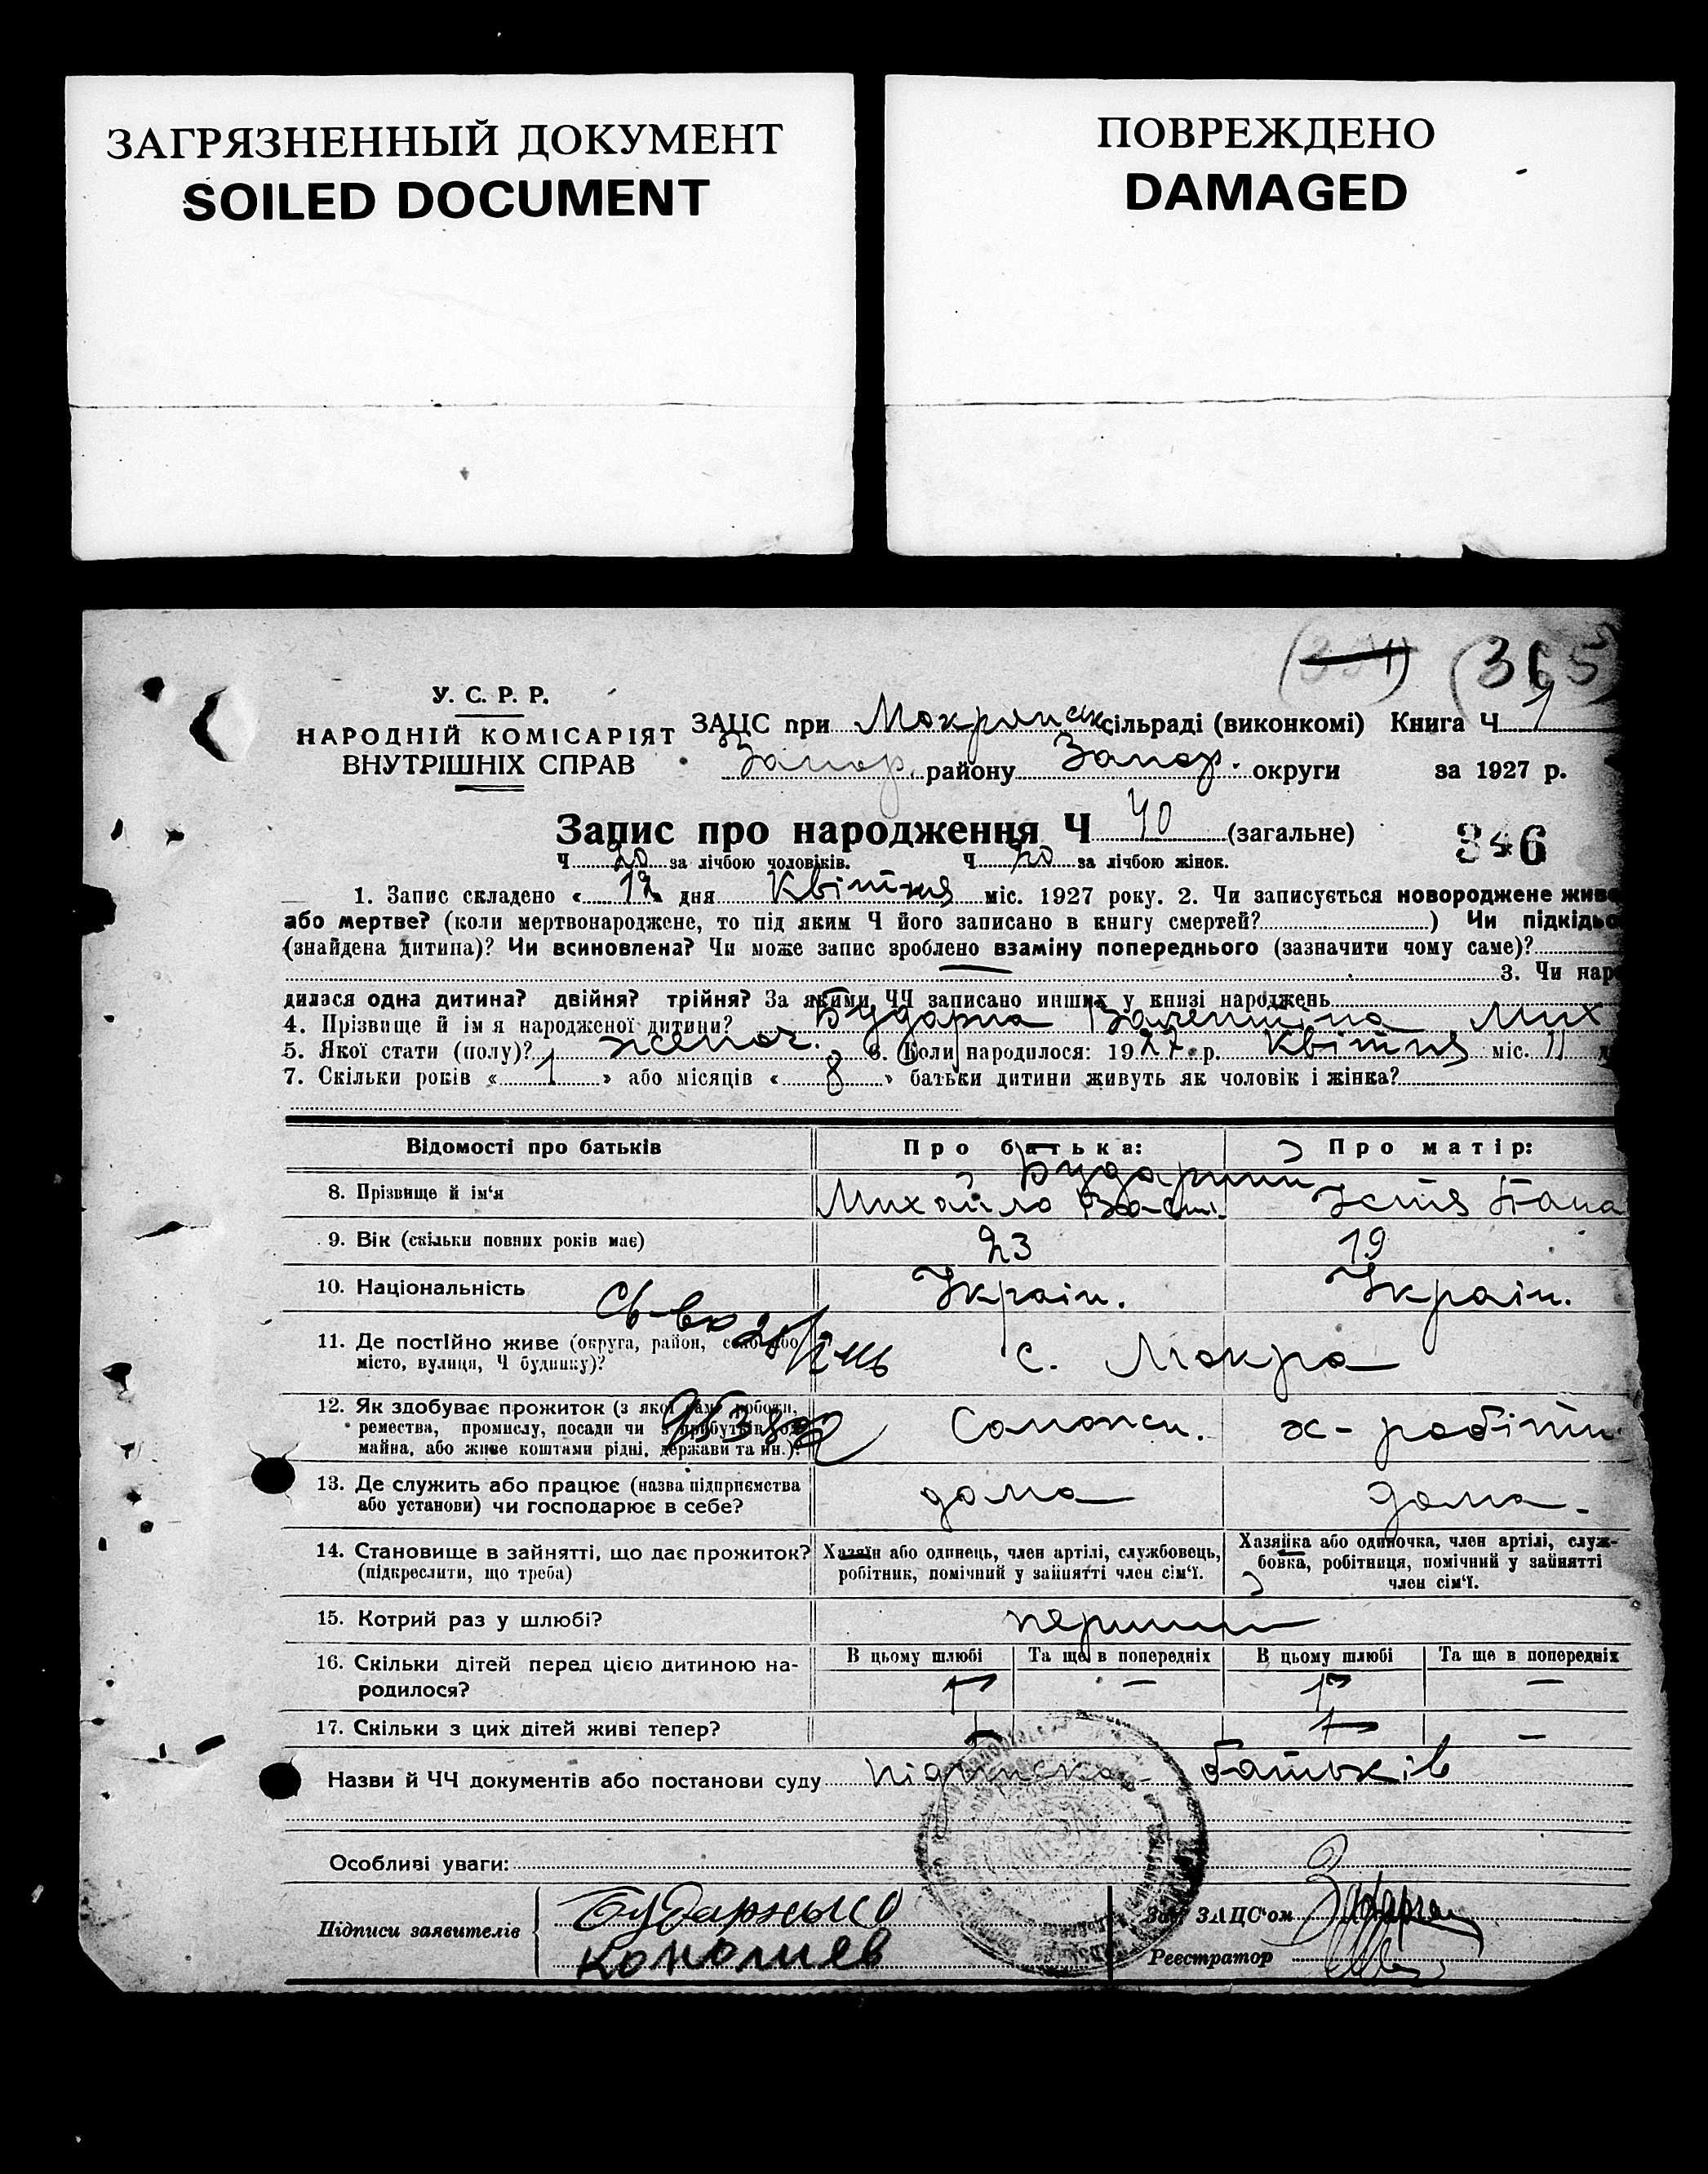 ЗАГРЯЗНЕННЫЙ ДОКУМЕНТ
SOILED DOCUMENT
ПОВРЕЖДЕНО
DAMAGED
(365)
У. С. Р. Р.
НАРОДНІЙ КОМІСАРІЯТ
ВНУТРІШНІХ СПРАВ
ЗАЦС при Мокрянск сільраді (виконкомі) Книга Ч 1
Запор. району Запор. округи за 1927 р.
Запис про народження Ч 40 (загальне)
346
Ч 20 за лічбою чоловіків. Ч 20 за лічбою жінок.
1. Запис складено « 12 » дня Квітня міс. 1927 року. 2. Чи записується новороджене живе
або мертве? (коли мертвонароджене, то під яким Ч його записано в книгу смертей? ) Чи підкідьо
(знайдена дитина)? Чи всиновлена? Чи може запис зроблено взаміну попереднього (зазначити чому саме)?
3. Чи нар
дилася одна дитина? двійня? трійня? За якими ЧЧ записано инших у книзі народжень
4. Прізвище й ім я народженої дитини? Бударна Валентіна Мих
5. Якої стати (полу)? женоч. 6. Коли народилося: 1927 р. Квітня міс. 11 д
7. Скільки років « 1 » або місяців « 8 » батьки дитини живуть як чоловік і жінка?
Відомості про батьків Про батька: Про матір:
8. Прізвище й ім‘я Михайло
9. Вік (скільки повних років має) 23 19
10. Національність Україн. Україн.
11. Де постійно живе (округа, район, село або
місто, вулиця, Ч будинку)? с. Мокра
12. Як здобуває прожиток (з якої саме роботи,
ремества, промислу, посади чи з прибутків од
майна, або живе коштами рідні, держави та ин.)?
13. Де служить або працює (назва підприємства
або установи) чи господарює в себе? дома дома
14. Становище в зайнятті, що дає прожиток?
(підкреслити, що треба)
Хазяїн або одинець, член артілі, службовець,
робітник, помічний у зайнятті член сім‘ї.
Хазяйка або одиночка, член артілі, служ-
бовка, робітниця, помічний у зайнятті
член сім‘ї.
15. Котрий раз у шлюбі? перший
В цьому шлюбі Та ще в попередніх В цьому шлюбі Та ще в попередніх
16. Скільки дітей перед цією дитиною на-
родилося? — —
17. Скільки з цих дітей живі тепер? —
Назви й ЧЧ документів або постанови суду підписка батьків
Особливі уваги:
Підписи заявителів
Зав. ЗАЦС‘ом
Реєстратор